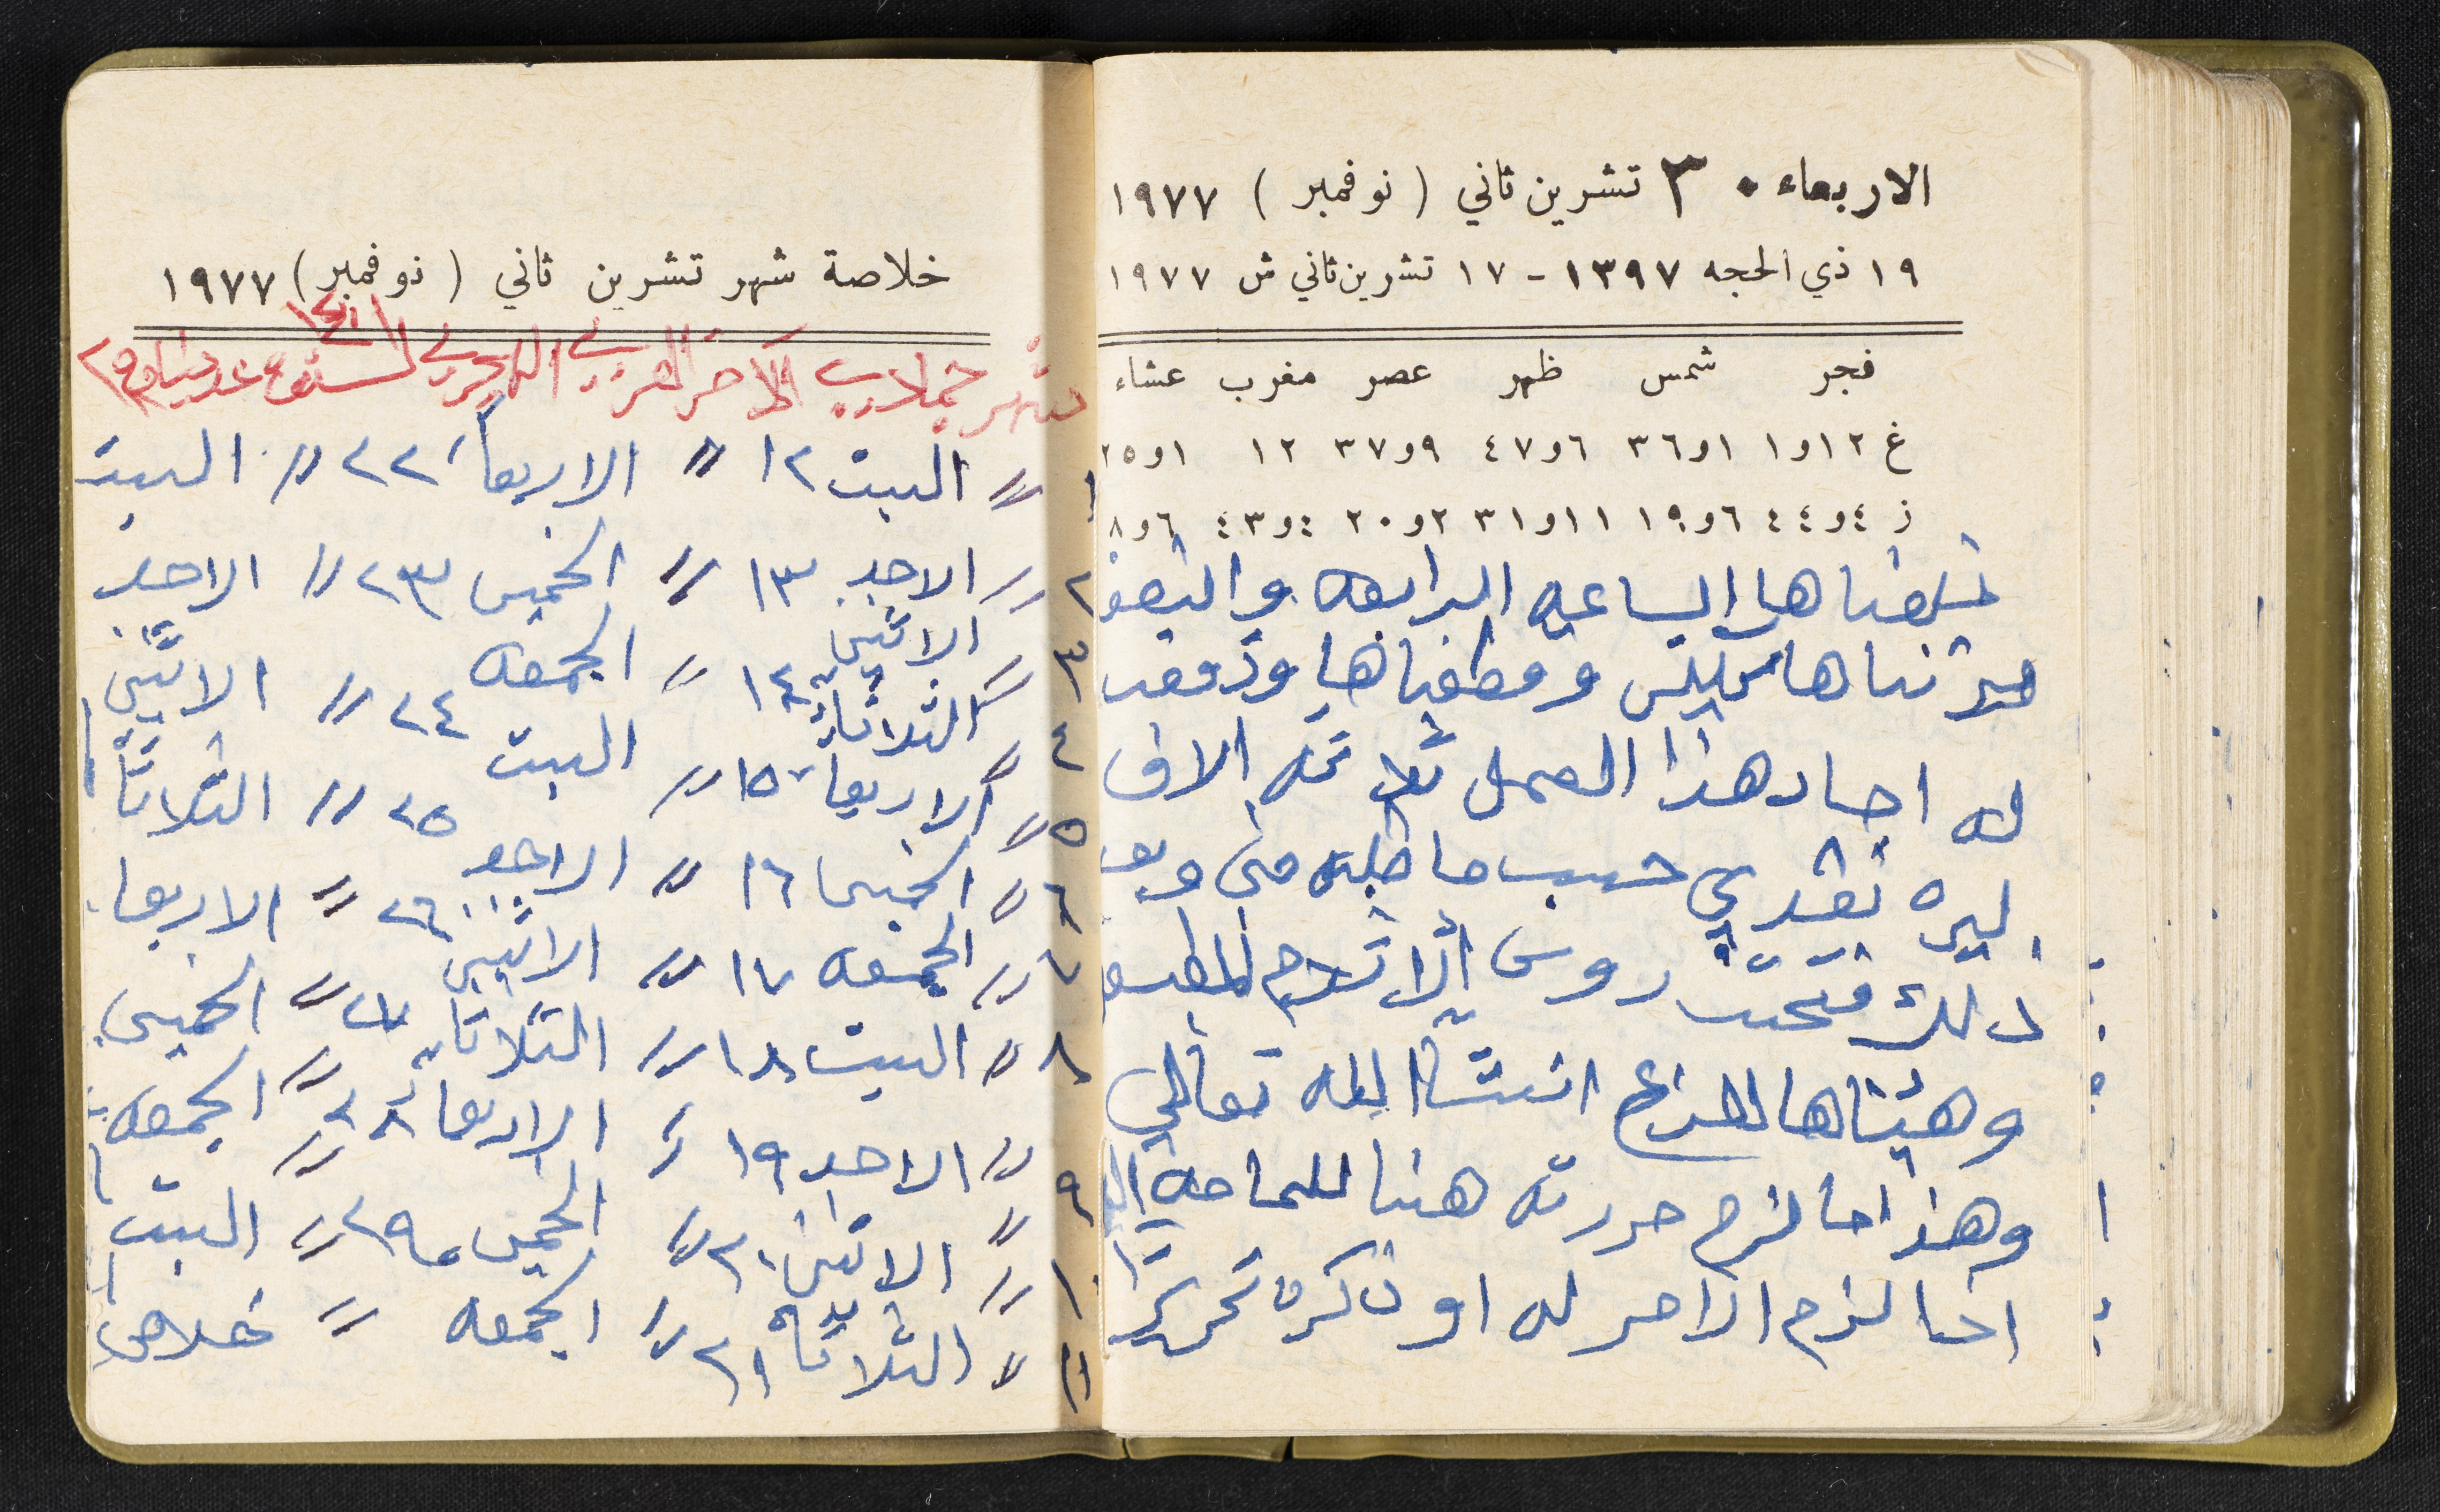 الاربعاء ٣٠ تشرين ثاني ( نوفمبر ) ١٩٧٧
١٩ ذي الحجه ١٣٩٧ - ١٧ تشرين ثاني ش ١٩٧٧
فجر شمس ظهر عصر مغرب عشاء
غ ١٢و١ ١و٣٦ ٦و٤٧ ٩و٣٧ ١٢ ١و٢٥
ز ٤و٤٤ ٦و١٩ ١١و٣١ ٢و٢٠ ٤و٣٤ ٦و٨
خلصناها الساعه الرابعه والنصف
ودفعت
له اجار هذا العمل ثلاثة الاف
ليره نقدي حسب ما طلبه مني وبعد
ذلك فتحت روس الاثلام
وهيئناها للزرع انشا الله تعالى
وهذا ما لزم حررته هنا
اذا لزم الامر له او ذكره
خلاصة شهر تشرين ثاني ( نوفمبر ) ١٩٧٧
شهر جمادي الآخر العربي الهجري لسنة ١٤٠١ عدد ايامه ٢٩
١ // السبت ١٢ // الاربعاء ٢٢ // السبت
٢ // الاحد ١٣ // الخميس ٢٣ // الاحد
٣ // الاثنين ١٤ // الجمعه ٢٤ // الاثنين
٤ // الثلاثاء ١٥ // السبت ٢٥ // الثلاثا
٥ // الاربعا ١٦ // الاحد ٢٦ // الاربعا
٦ // الخميس ١٧ // الاثنين ٢٧ // الخميس
٧ // الجمعه ١٨ // الثلاثاء ٢٨ // الجمعه
٨ // السبت ١٩ // الاربعاء ٢٩ // السبت
٩ // الاحد ٢٠ // الخميس // خلاص
١٠ // الاثنين ٢١ // الجمعه
١١ // الثلاثاء